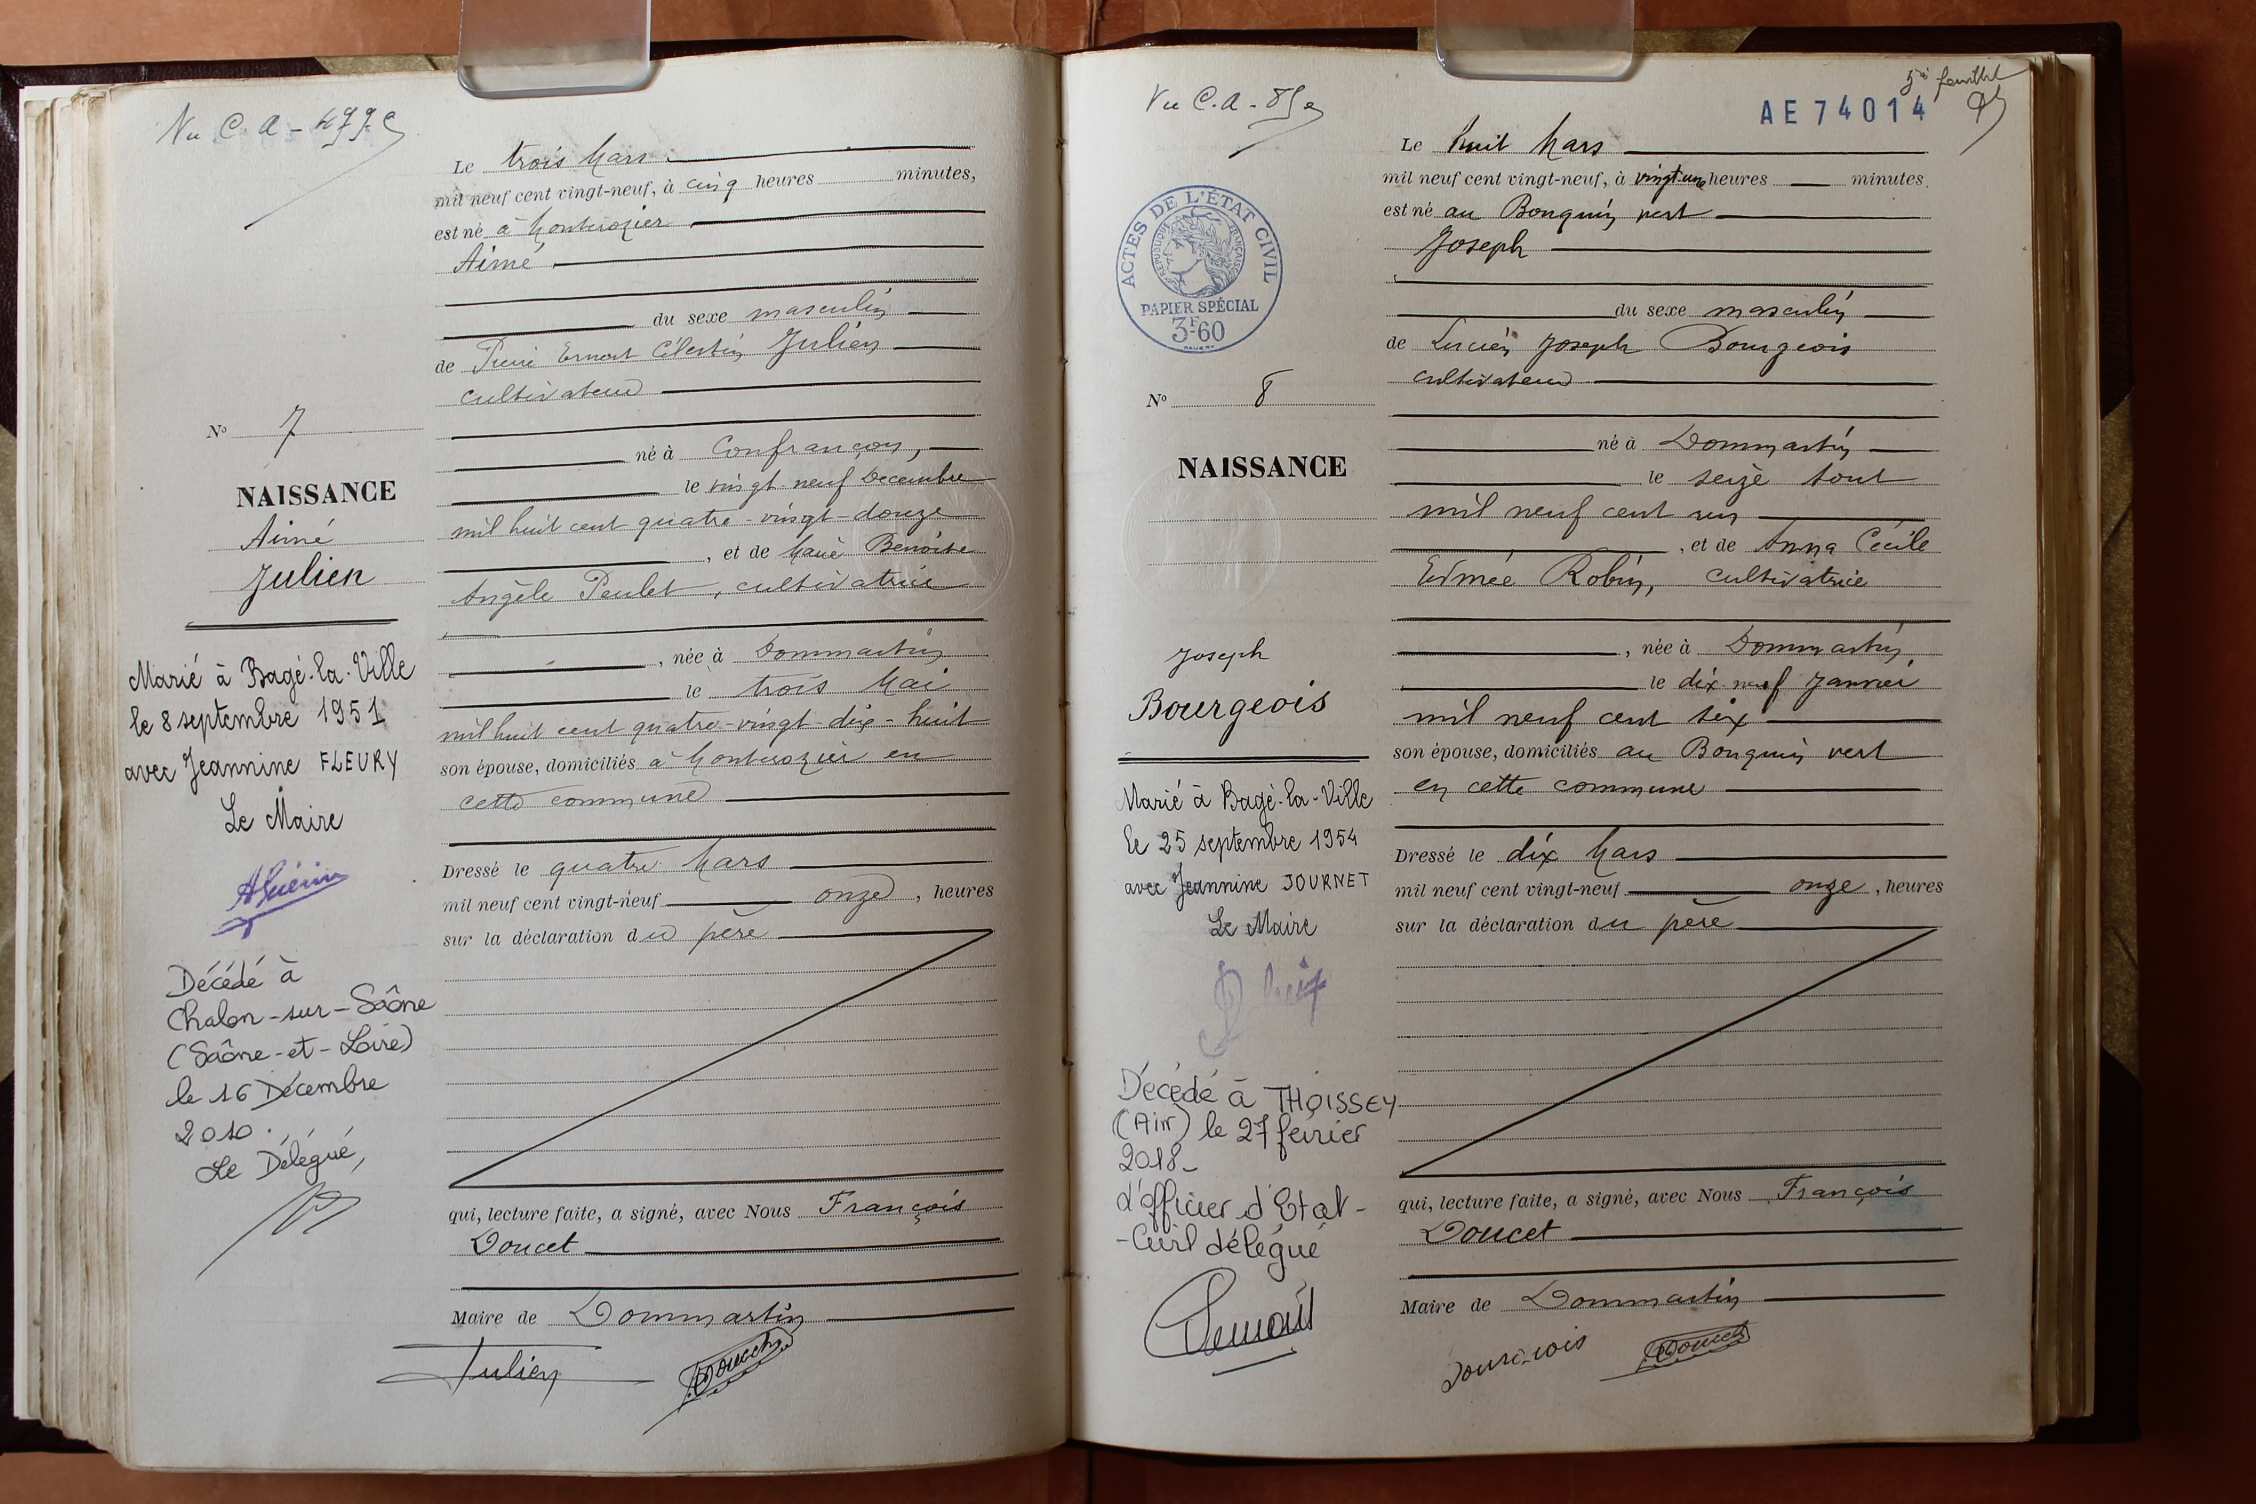 Vu C. A -
Le trois Mars
mil neuf cent vingt-neuf, à cinq heures minutes,
est né à Montcrozier
Aimé
du sexe masculin
de Pierre Ernest Célestin Julien
cultivateur
né à Confrançon,
le vingt neuf Decembre
mil huit cent quatre-vingt-douze
, et de Marie Benoite
Angèle Peulet, cultivatrice
, née à Dommartin
le trois Mai
mil huit cent quatre-vingt-dix-huit
son épouse, domiciliés à Montcrozier en
cette commune
Dressé le quatre Mars
mil neuf cent vingt-neuf onze, heures
sur la déclaration du père
qui, lecture faite, a signé, avec Nous François
Doucet
Maire de Dommartin
Julien Doucet
No 7
NAISSANCE
Aimé
Julien
Marié à Bagé-la-Ville
le 8 septembre 1951
avec Jeannine FLEURY
Le Maire
AGuérin
Décédé à
Chalon-sur-Saône
(Saône-et-Loire)
le 16 Décembre
2010.
Le Délégué,
Vu C. A -
5e feuillet
AE 74014
Le huit Mars
mil neuf cent vingt-neuf, à vingt une heures minutes.
est né au Bonquin vert
Joseph
du sexe masculin
de Lucien Joseph Bourgeois
cultivateur
né à Dommartin
le seize Aout
mil neuf cent un
, et de Anna Cécile
Edmée Robin, cultivatrice
, née à Dommartin,
le dix neuf Janvier
mil neuf cent six
son épouse, domiciliés au Bonquin vert
en cette commune
Dressé le dix Mars
mil neuf cent vingt-neuf onze, heures
sur la déclaration du père
qui, lecture faite, a signé, avec Nous François
Doucet
Maire de Dommartin
Bourgeois Doucet
ACTES DE L'ÉTAT CIVIL
RÉPUBLIQUE FRANÇAISE
PAPIER SPÉCIAL
3F60
No 8
NAISSANCE
Joseph
Bourgeois
Marié à Bagé-la-Ville
le 25 septembre 1954
avec Jeannine JOURNET
Le Maire
Décédé à THOISSEY
(Ain) le 27 février
2018-
L'officier d'Etat-
-Civil délégué